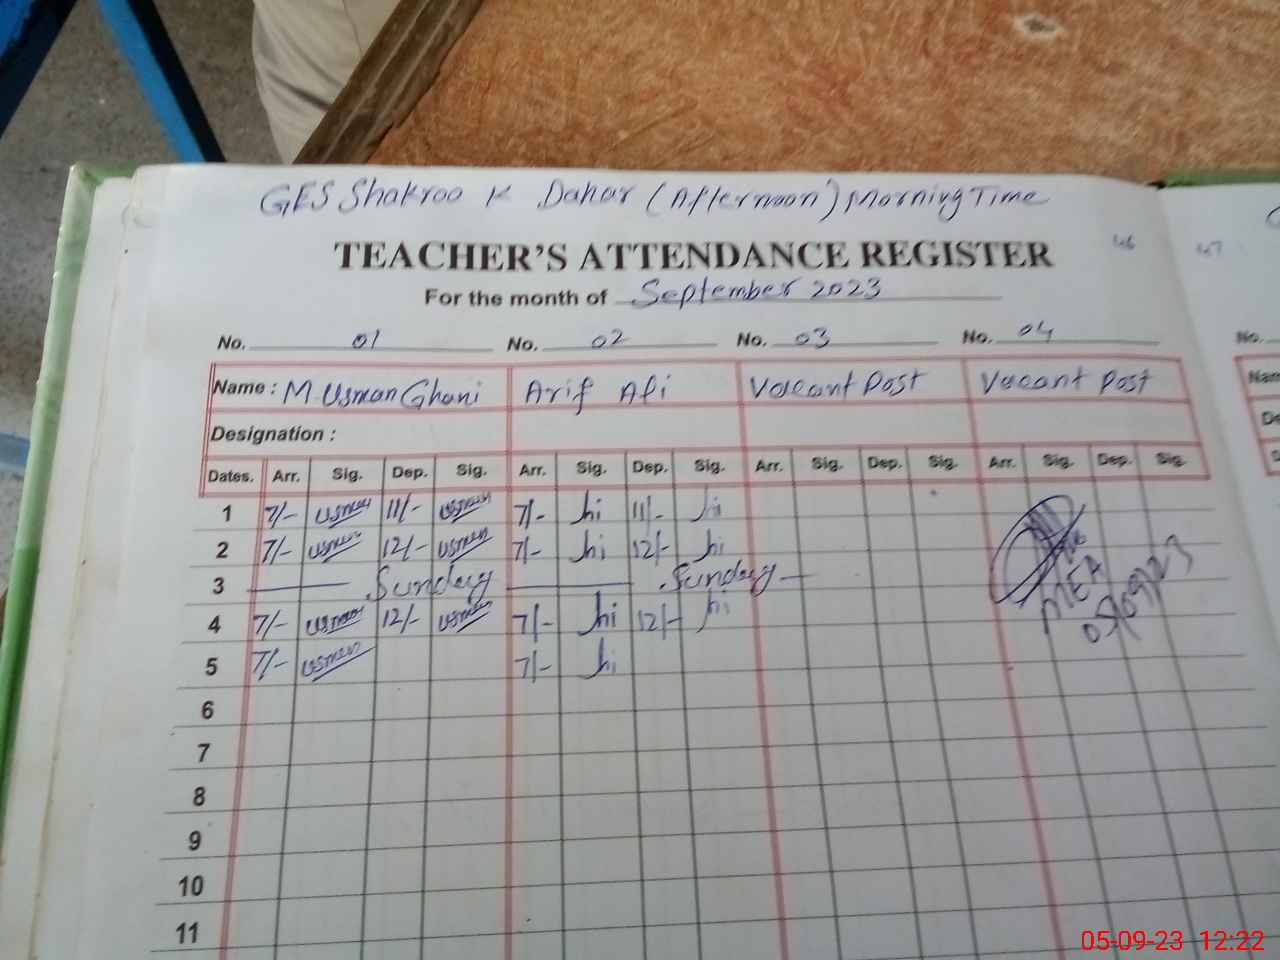 GES Shakroo K Dahar (Afternoon) Morning Time
TEACHER'S ATTENDANCE REGISTER 46 47
For the month of September 2023
No. 01 No. 02 No. 03 No. 04 No.
Name : M. Usman Ghani Arif Ali Vacant Post Vacant Post Nam
Designation : De
Dates. Arr. Sig. Dep. Sig. Arr. Sig. Dep. Sig. Arr. Sig. Dep. Sig. Arr. Sig. Dep. Sig.
1 7/- usman 11/- usman 7/- 11/-
2 7/- usman 12/- usman 7/- 12/-
3 Sunday Sunday
4 7/- usman 12/- usman 7/- 12/-
5 7/- usman 7/-
MEA
05/09/23
6
7
8
9
10
11
05-09-23 12:22